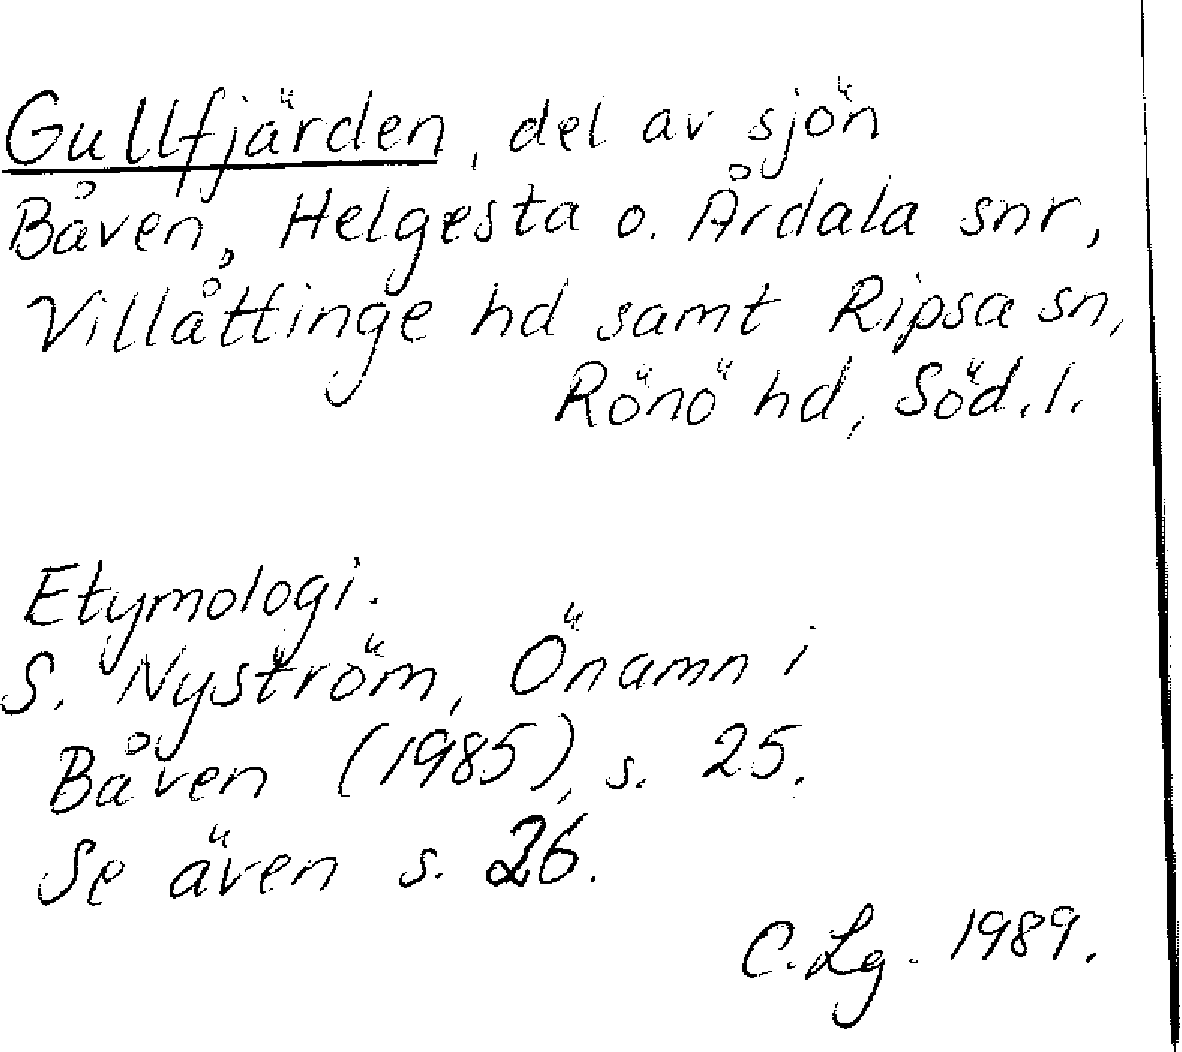 Gullfjärden, del av sjön
Båven, Helgesta o. Årdala snr,
Villåttinge hd samt Ripsa sn,
Rönö hd, Söd.l.
Etymologi.
S. Nyström, Önamn i
Båven (1985), s. 25.
Se även s. 26.
C.Lg. 1989.